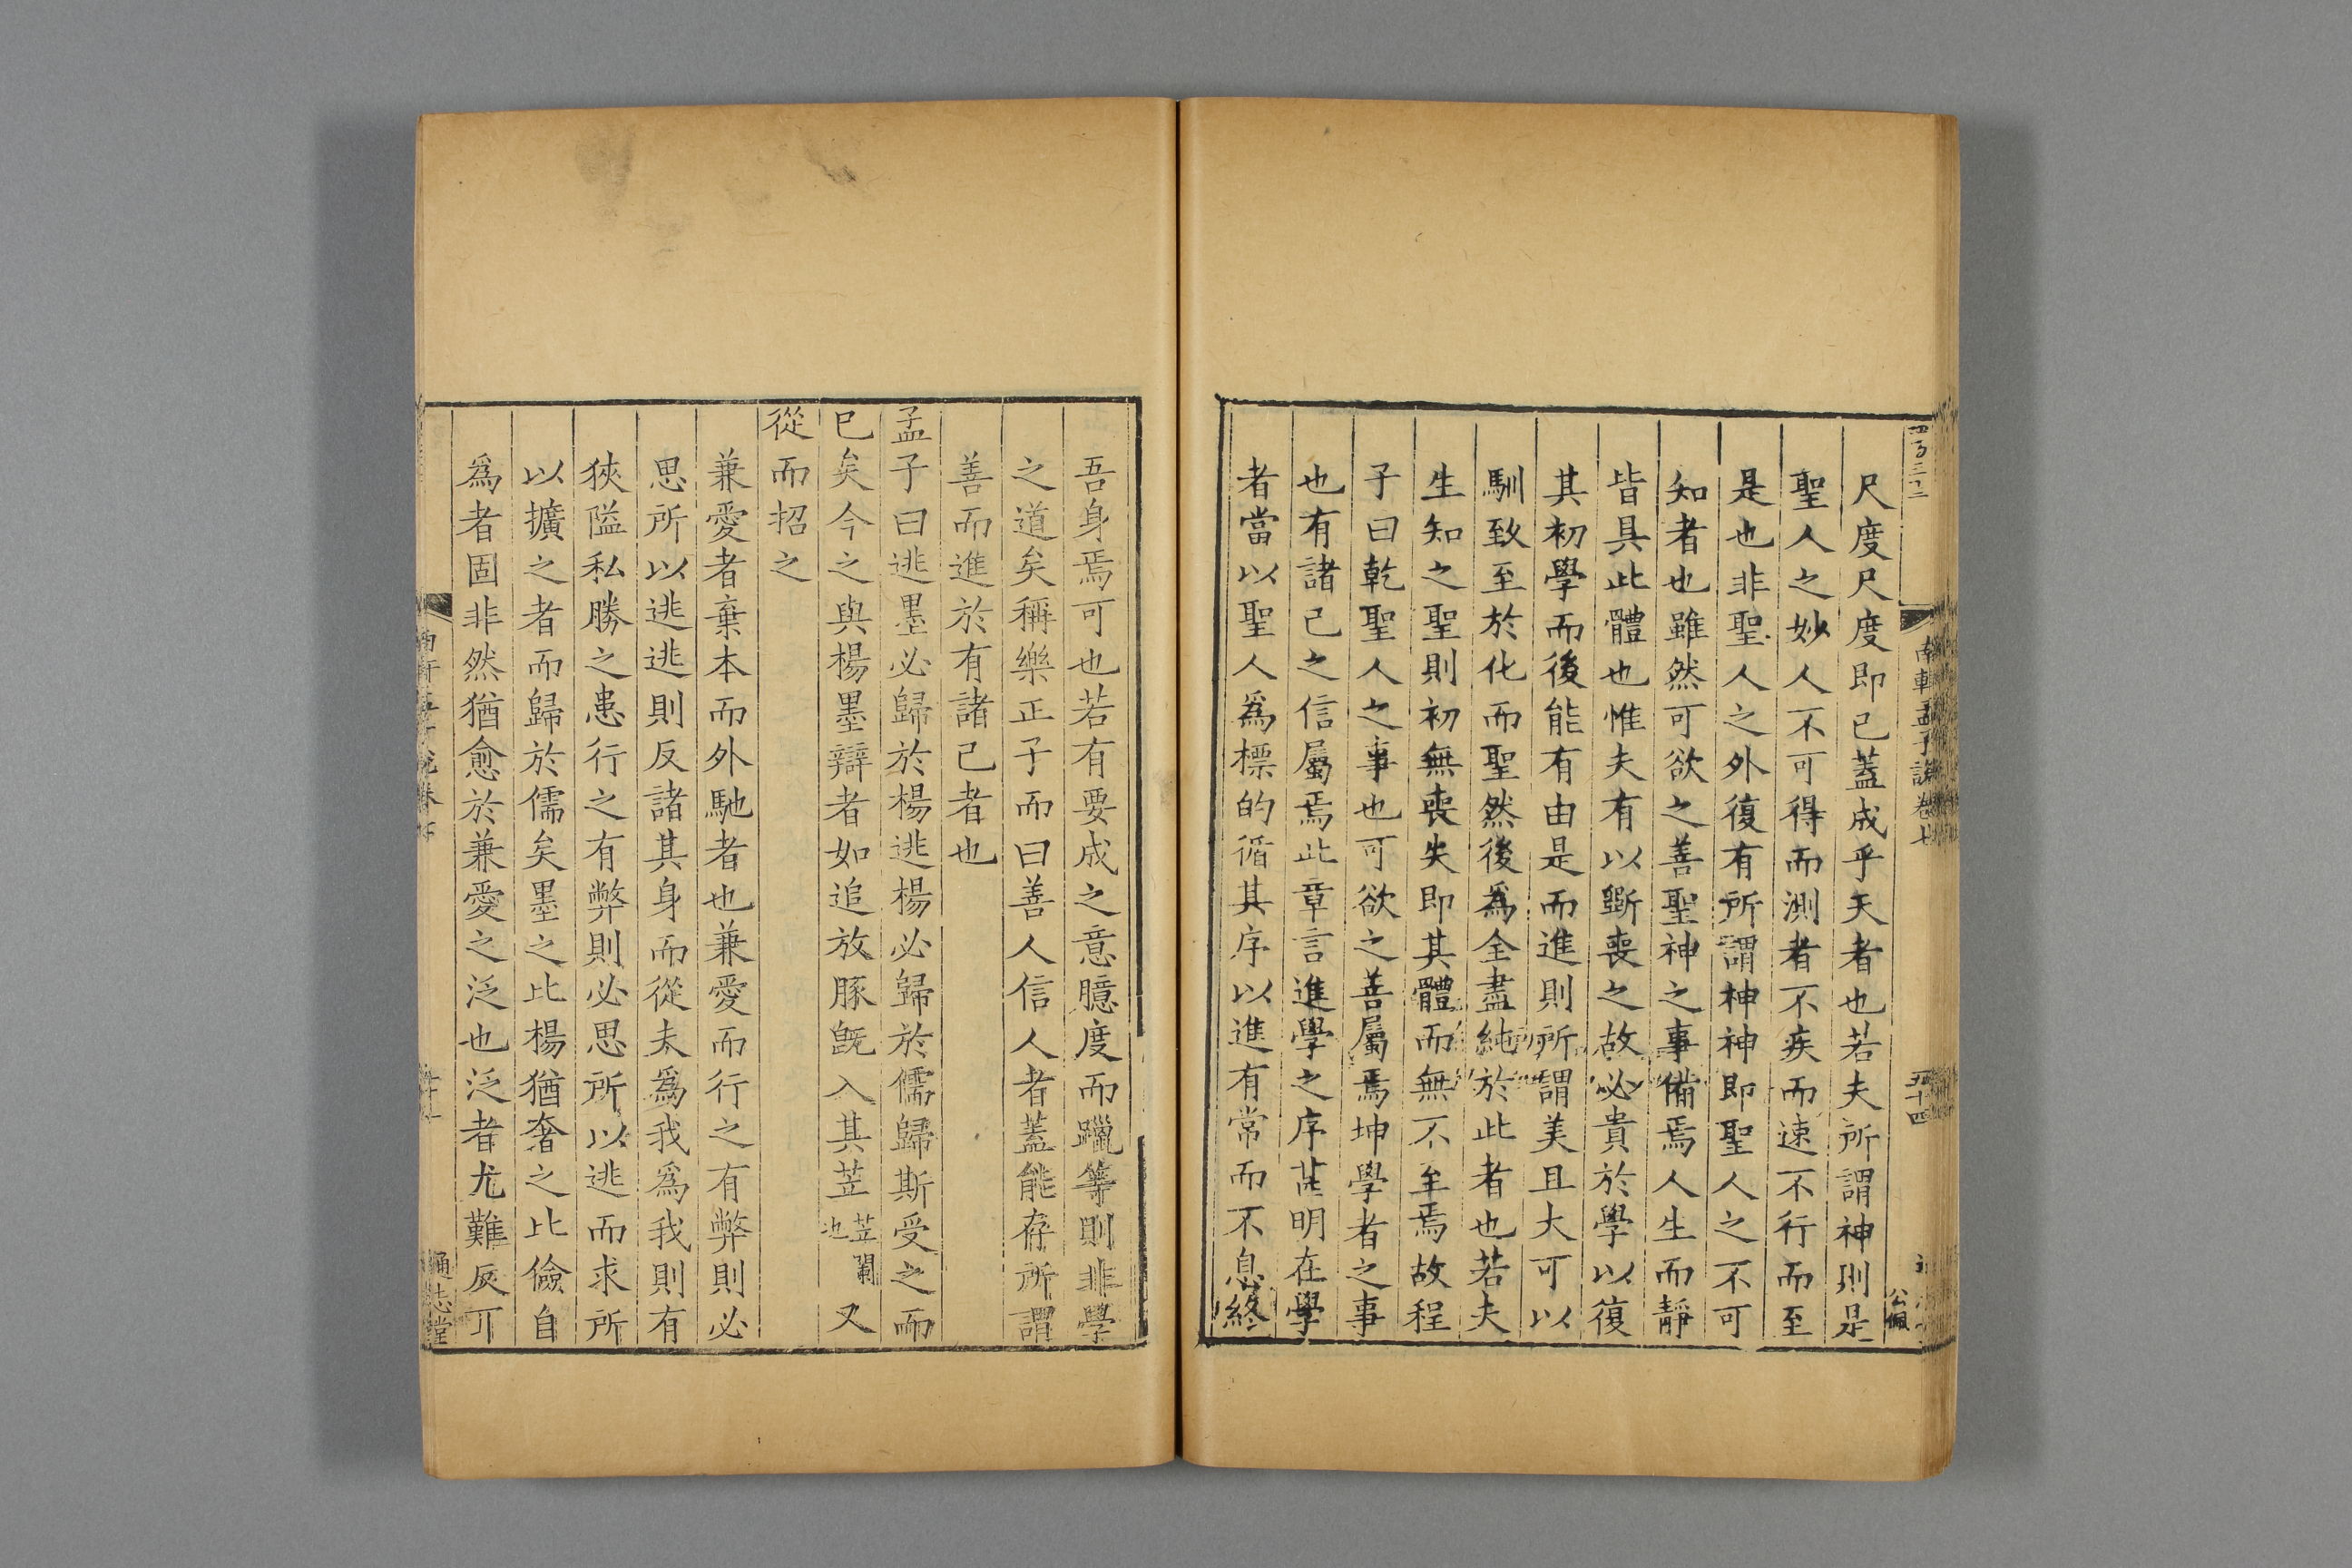 南軒孟子說卷七
五十四
公佩
尺度尺度即己蓋成乎天者也若夫所謂神則是
聖人之妙人不可得而測者不疾而速不行而至
是也非聖人之外復有所謂神神即聖人之不可
知者也雖然可欲之善聖神之事備焉人生而靜
皆具此體也惟夫有以斲喪之故必貴於學以復
其初學而後能有由是而進則所謂美且大可以
馴致至於化而聖然後爲全盡純於此者也若夫
生知之聖則初無喪失即其體而無不至焉故程
子曰乾聖人之事也可欲之善屬焉坤學者之事
也有諸己之信屬焉此章言進學之序甚明在學
者當以聖人爲標的循其序以進有常而不息終
吾身焉可也若有要成之意臆度而躐等則非學
之道矣稱樂正子而曰善人信人者蓋能存所謂
善而進於有諸己者也
孟子曰逃墨必歸於楊逃楊必歸於儒歸斯受之而
已矣今之與楊墨辯者如追放豚旣入其苙苙闌也又
從而招之
兼愛者棄本而外馳者也兼愛而行之有弊則必
思所以逃逃則反諸其身而從夫爲我爲我則有
狹隘私勝之患行之有弊則必思所以逃而求所
以擴之者而歸於儒矣墨之比楊猶奢之比儉自
爲者固非然猶愈於兼愛之泛也泛者尤難反耳
通志堂